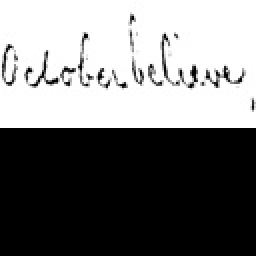 October believe,